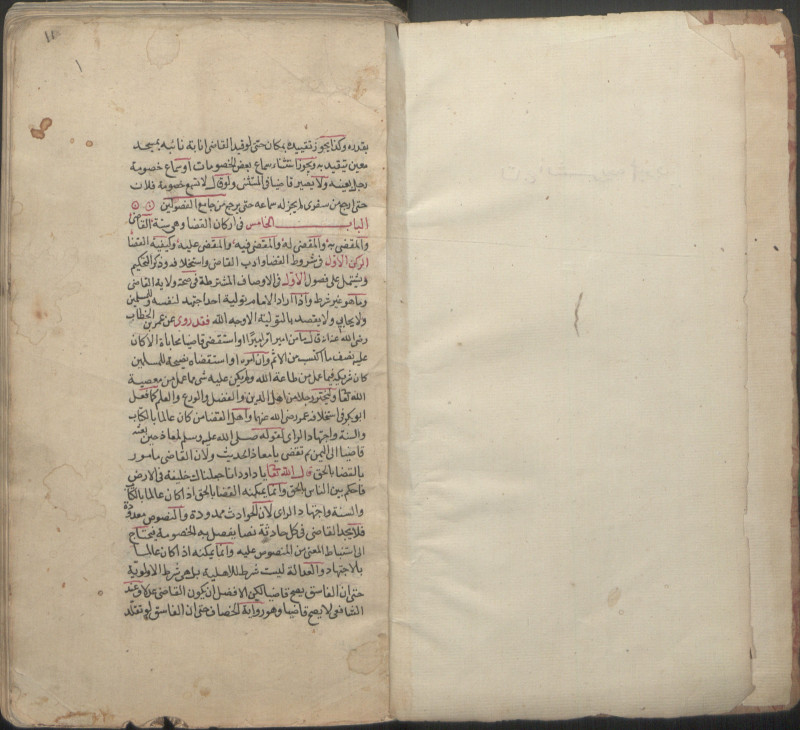 ١١
١
بقدره وكذا يجوز تقييده بمكان حتى لو قيد القاضي انابة نائبه بمسجد
معين يتقيد به ويجوز استثناء سماع بعض الخصومات او سماع خصومة
رجل بعينه ولا يصير قاضيا في المستثنى ولو قال لا تسمع خصومة فلان
حتى ارجع من سفرى لم يجز له سماعه حتى يرجع من جامع الفصولين
الباب الخامس في اركان القضا وهي ستة القاضى
والمقضى به والمقضى له والمقضى فيه والمقضى عليه وكيفية القضا
الركن الاول في شروط القضا وادب القاضى واستخلافه وذكر التحكيم
ويشتمل على فصول الاول في الاوصاف المشترطة في صحة ولاية القاضى
وما هو غير شرط واذا اراد الامام تولية احد اجتهد لنفسه وللمسلمين
ولا يحابي ولا يقصد بالتولية الا وجه الله فقد روى عن عمر بن الخطاب
رضى الله عنه انه قال ما من امير امر اميرا او استقضى قاضيا محاباة الا كان
عليه نصف ما اكتسب من الاثم وان امره او استقضاه نصيحة للمسلمين
كان شريكه فيما عمل من طاعة الله ولم يكن عليه شى مما عمل من معصية
الله تعا وليختر رجلا من اهل الدين والفضل والورع والعلم كما فعل
ابو بكر في استخلافه عمر رضى الله عنهما واهل القضا من كان عالما بالكتاب
والسنة واجتهاد الراى لقوله صلى الله عليه وسلم لمعاذ حين بعثه
قاضيا الى اليمن بم تقضى يا معاذ الحديث ولان القاضى مامور
بالقضا بالحق قال الله تعا يا داود انا جعلناك خليفة في الارض
فاحكم بين الناس بالحق وانما يمكنه القضا بالحق اذا كان عالما بالكتاب
والسنة واجتهاد الراى لان الحوادث ممدودة والنصوص معدودة
فلا يجد القاضى في كل حادثة نصا يفصل به الخصومة فيحتاج
الى استنباط المعنى من المنصوص عليه وانما يمكنه اذا كان عالما
بالاجتهاد والعدالة ليست شرط للاهلية بل هي شرط الاولوية
حتى ان الفاسق يصح قاضيا لكن الافضل ان يكون القاضى عدلا وعند
الشافعى لا يصح قاضيا وهو رواية الخصاف حتى ان الفاسق لو تقلد